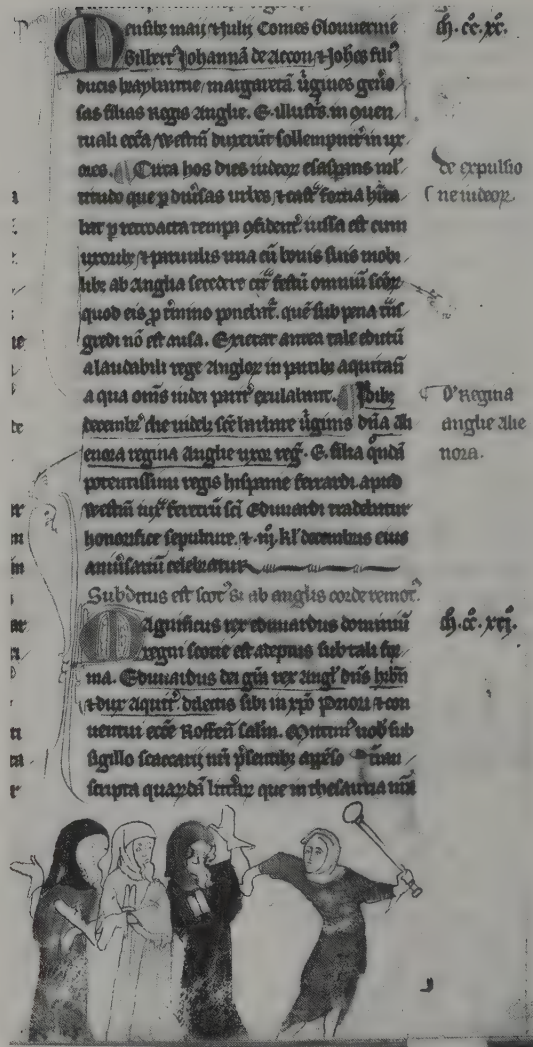 Mensibȝ maij ⁊ Julij Comes Glouuernie
Gilbertꝰ Johannā de Accon, ⁊ Joh̄es filiꝰ
ducis braybanne, margaretā, ṽgines gen̾o
sas filias Regis Anglie. E. illustꝛis. in quen
tuali ecc̄a Westm̄ duxerūt sollempnit̾ in vx
ores. Circa hos dies iudeoꝝ exaspans ml̄
titudo que ꝑ diu̾sas urbes ⁊ castꝛa
bat ꝑ retroacta tempa ꝯfident̾. iussa est cum
uxoribȝ ⁊ paruulis una cū bonis suis mobi
libȝ ab Anglia secedere cit̾ festū omniū sc̄oꝝ
quod eis ꝓ t̾mino ponebat̾. quē sub pena
gredi nō est ausa. Exierat antea tale edictū
a laudabili rege Angloꝝ in partibȝ aquitan̄
a qua om̄s iudei parit̾ exulabant. Idibȝ
decembꝛ̾ die videlȝ sc̄e lucie ṽginis dn̄a Ali
enora regina Anglie uxor reg̾. E. filia q̊ndā
potentissimi regis hispanie ferrardi. apud
Westm̄ iux̾ feretrū sc̄i Edwardi traditur
honorifice sepulture. ⁊ .iiij. kl̄ decembris eius
anniũsariū celebratur
Subditus est scotꝰ si ab anglis corde remotꝰ.
Magnificus rex edwardus dominiū
regni scotie est adeptus sub tali for
ma. Edwardus dei gr̄a rex Angl̾ dn̄s hib̄n̄
⁊ dux Aquit̾. dilectis sibi in xp̄o Priori ⁊ con
uentui ecc̄e Roffen̄ salm̄. Mittimꝰ uob̄ sub
sigillo scaccarij nr̄i p̄sentibȝ app̄so t̾an
scripta quarūdā litt̾aꝝ que in thesauria nr̄a
m̊. cc̊. xc̊.
de expulsio
ne iudeoꝝ
Oꝰ Regina
anglie Alie
nora.
m̊. cc̊. xcj̊.